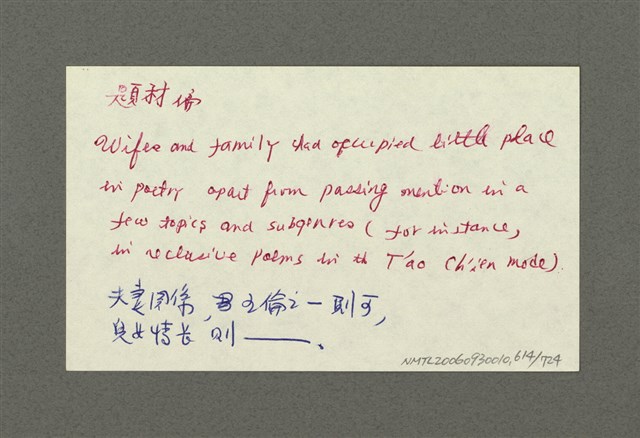 題材
Wifes and family had occupied little place
in poetry apart from passing mention in a
few topics and subgenres ( for instance,
in reclusive poems in th T'ao Ch'ien mode).
夫妻関係, 五倫之一則可,
兒女情長 則 ———.
NMTL20060930010,614/724